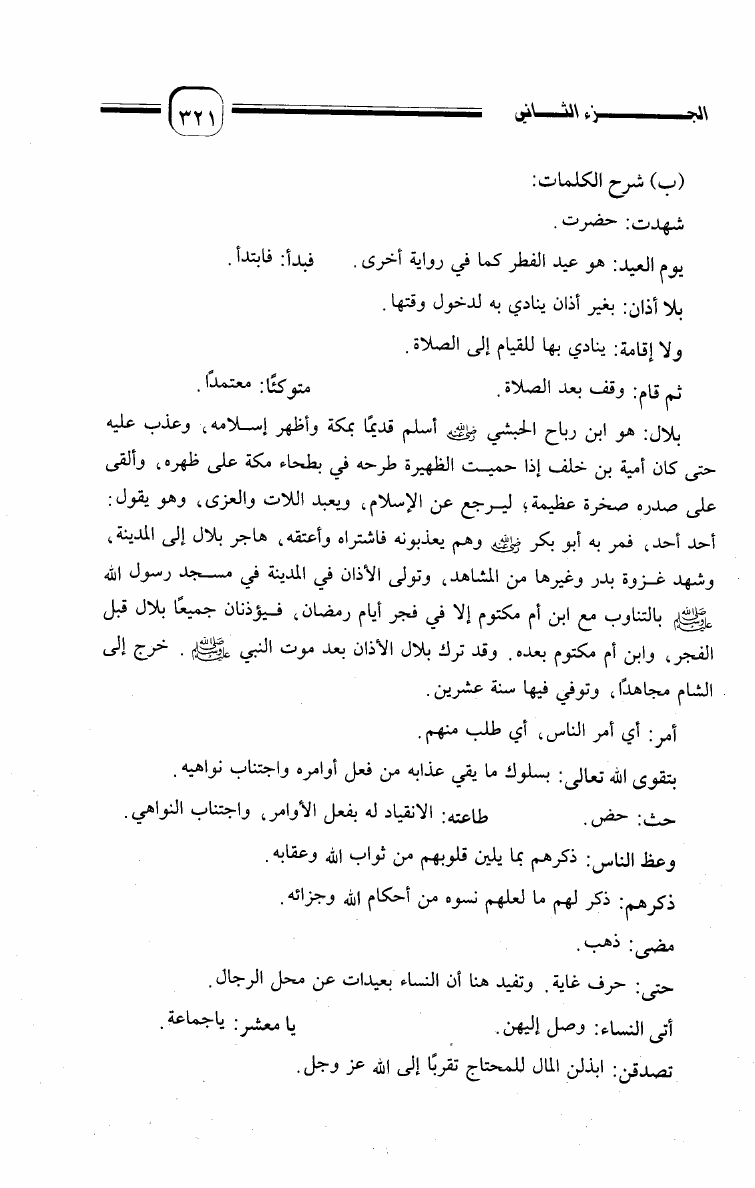 الجـــزء الثـــاني ٣٢١
(ب) شرح الكلمات:
شهدت: حضرت.
يوم العيد: هو عيد الفطر كما في رواية أخرى. فبدأ: فابتدأ.
بلا أذان: بغير أذان ينادي به لدخول وقتها.
ولا إقامة: ينادي بها للقيام إلى الصلاة.
ثم قام: وقف بعد الصلاة. متوكئًا: معتمدًا.
بلال: هو ابن رباح الحبشي رضي الله عنه أسلم قديمًا بمكة وأظهر إسـلامه، وعذب عليه
حتى كان أمية بن خلف إذا حميـت الظهيرة طرحه في بطحاء مكة على ظهره، وألقى
على صدره صخرة عظيمة؛ ليـرجع عن الإسلام، ويعبد اللات والعزى، وهو يقول:
أحد أحد، فمر به أبو بكر رضي الله عنه وهم يعذبونه فاشتراه وأعتقه، هاجر بلال إلى المدينة،
وشهد غـزوة بدر وغيرها من المشاهد، وتولى الأذان في المدينة في مسـجد رسول الله
ﷺ بالتناوب مع ابن أم مكتوم إلا في فجر أيام رمضان، فـيؤذنان جميعًا بلال قبل
الفجر، وابن أم مكتوم بعده. وقد ترك بلال الأذان بعد موت النبي ﷺ. خرج إلى
الشام مجاهدًا، وتوفي فيها سنة عشرين.
أمر: أي أمر الناس، أي طلب منهم.
بتقوى الله تعالى: بسلوك ما يقي عذابه من فعل أوامره واجتناب نواهيه.
حث: حض. طاعته: الانقياد له بفعل الأوامر، واجتناب النواهي.
وعظ الناس: ذكرهم بما يلين قلوبهم من ثواب الله وعقابه.
ذكرهم: ذكر لهم ما لعلهم نسوه من أحكام الله وجزائه.
مضى: ذهب.
حتى: حرف غاية. وتفيد هنا أن النساء بعيدات عن محل الرجال.
أتى النساء: وصل إليهن. يا معشر: ياجماعة.
تصدقن: ابذلن المال للمحتاج تقربًا إلى الله عز وجل.